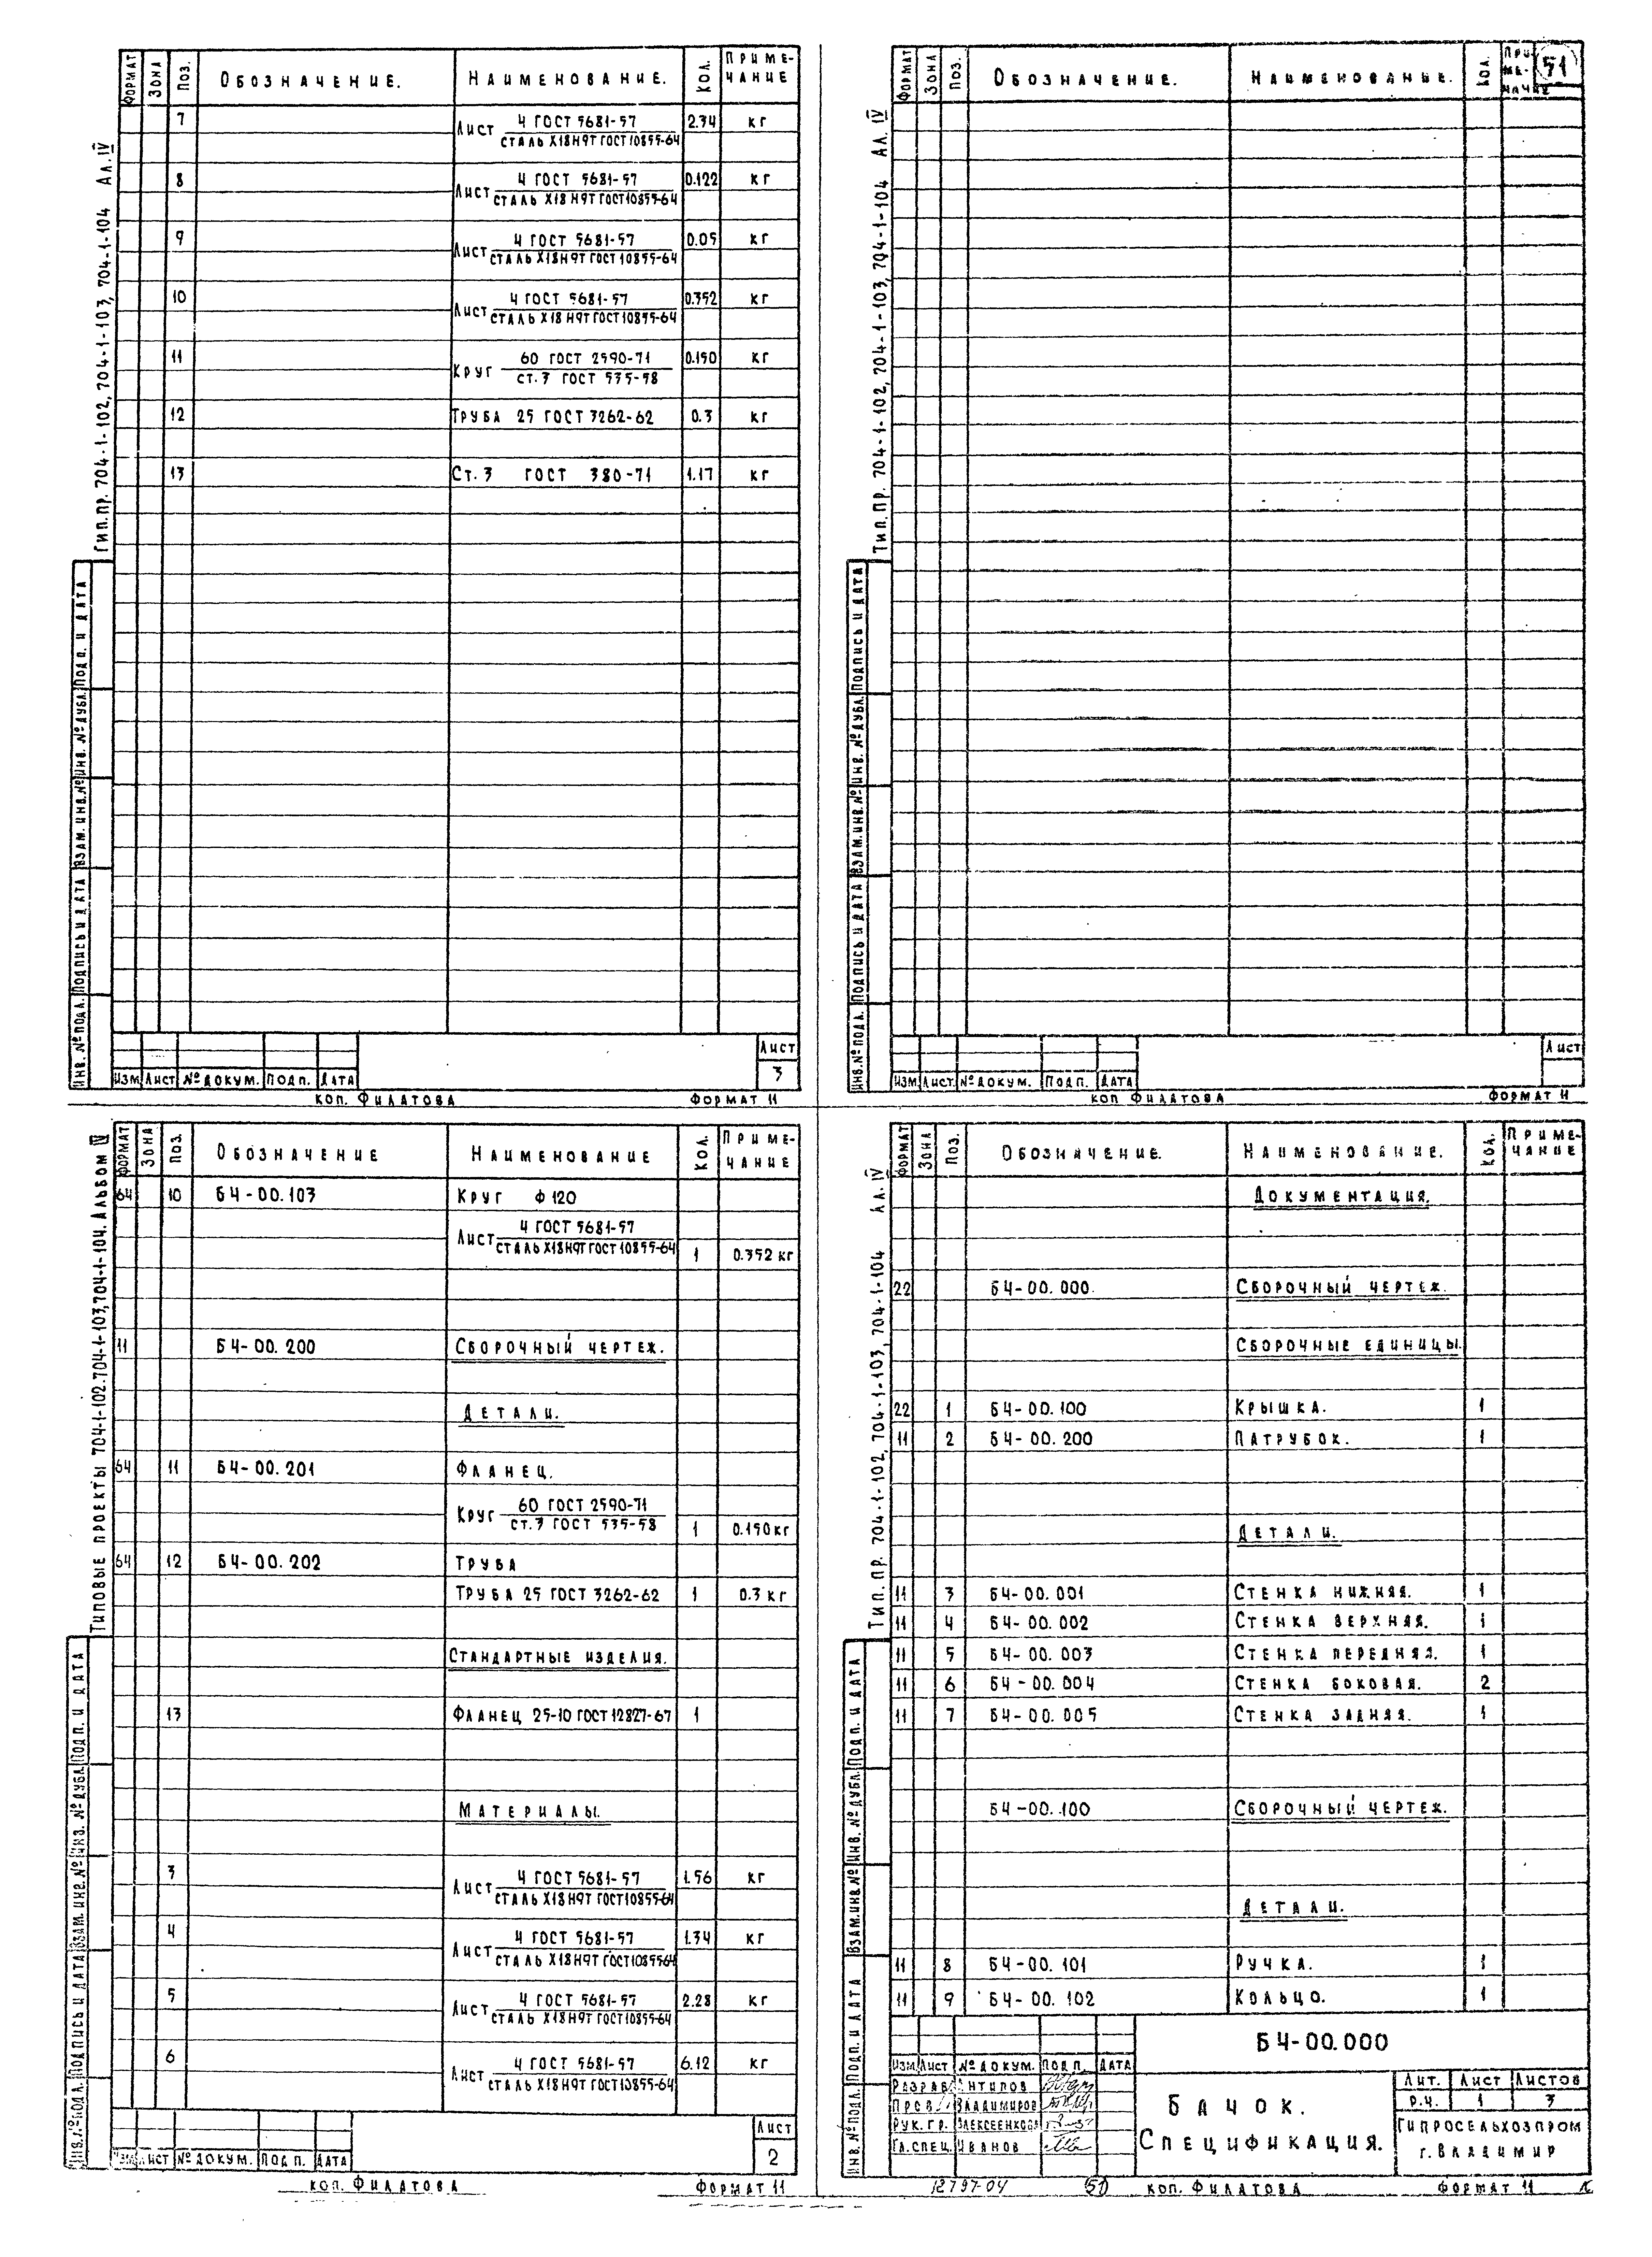 ФОРМАТ ЗОНА ПОЗ. ОБОЗНАЧЕНИЕ. НАИМЕНОВАНИЕ. КОЛ. ПРИМЕ-
ЧАНИЕ
7 Лист 4 ГОСТ 5681-57 2.34 кг
СТАЛЬ Х18Н9Т ГОСТ 10855-64
8 Лист 4 ГОСТ 5681-57 0.122 кг
СТАЛЬ Х18Н9Т ГОСТ 10855-64
9 Лист 4 ГОСТ 5681-57 0.05 кг
СТАЛЬ Х18Н9Т ГОСТ 10855-64
10 Лист 4 ГОСТ 5681-57 0.352 кг
СТАЛЬ Х18Н9Т ГОСТ 10855-64
11 Круг 60 ГОСТ 2590-71 0.150 кг
СТ.3 ГОСТ 535-58
12 ТРУБА 25 ГОСТ 3262-62 0.3 кг
13 Ст.3 ГОСТ 380-71 1.17 кг
Тип.пр. 704-1-102, 704-1-103, 704-1-104 Ал. IV
ИНВ. № ПОДЛ. ПОДПИСЬ И ДАТА ВЗАМ. ИНВ. № ИНВ. № ДУБЛ. ПОДП. И ДАТА
ИЗМ ЛИСТ № ДОКУМ. ПОДП. ДАТА
Лист
3
КОП. ФИЛАТОВА ФОРМАТ 11
ФОРМАТ ЗОНА ПОЗ. ОБОЗНАЧЕНИЕ. НАИМЕНОВАНИЕ. КОЛ. ПРИ-
МЕ-
ЧАНИЕ
51
Тип.пр. 704-1-102, 704-1-103, 704-1-104 Ал. IV
ИНВ. № ПОДЛ. ПОДПИСЬ И ДАТА ВЗАМ. ИНВ. № ИНВ. № ДУБЛ. ПОДПИСЬ И ДАТА
ИЗМ ЛИСТ № ДОКУМ. ПОДП. ДАТА
Лист
КОП ФИЛАТОВА ФОРМАТ 11
ФОРМАТ ЗОНА ПОЗ. ОБОЗНАЧЕНИЕ НАИМЕНОВАНИЕ КОЛ. ПРИМЕ-
ЧАНИЕ
64 10 Б4-00.103 Круг Ф120
Лист 4 ГОСТ 5681-57
СТАЛЬ Х18Н9Т ГОСТ 10855-64 1 0.352 кг
11 Б4-00.200 СБОРОЧНЫЙ ЧЕРТЕЖ.
ДЕТАЛИ.
64 11 Б4-00.201 ФЛАНЕЦ.
Круг 60 ГОСТ 2590-71
СТ.3 ГОСТ 535-58 1 0.150 кг
64 12 Б4-00.202 ТРУБА
ТРУБА 25 ГОСТ 3262-62 1 0.3 кг
СТАНДАРТНЫЕ ИЗДЕЛИЯ.
13 ФЛАНЕЦ 25-10 ГОСТ 12827-67 1
МАТЕРИАЛЫ.
3 Лист 4 ГОСТ 5681-57 1.56 кг
СТАЛЬ Х18Н9Т ГОСТ 10855-64
4 Лист 4 ГОСТ 5681-57 1.34 кг
СТАЛЬ Х18Н9Т ГОСТ 10855-64
5 Лист 4 ГОСТ 5681-57 2.28 кг
СТАЛЬ Х18Н9Т ГОСТ 10855-64
6 Лист 4 ГОСТ 5681-57 6.12 кг
СТАЛЬ Х18Н9Т ГОСТ 10855-64
ТИПОВЫЕ ПРОЕКТЫ 704-1-102. 704-1-103, 704-1-104. АЛЬБОМ IV
ИНВ. № ПОДЛ. ПОДПИСЬ И ДАТА ВЗАМ. ИНВ. № ИНВ. № ДУБЛ. ПОДП. И ДАТА
ИЗМ ЛИСТ № ДОКУМ. ПОДП. ДАТА
Лист
2
КОП. ФИЛАТОВА ФОРМАТ 11
ФОРМАТ ЗОНА ПОЗ. ОБОЗНАЧЕНИЕ. НАИМЕНОВАНИЕ. КОЛ. ПРИМЕ-
ЧАНИЕ
ДОКУМЕНТАЦИЯ.
22 Б4-00.000. СБОРОЧНЫЙ ЧЕРТЕЖ.
СБОРОЧНЫЕ ЕДИНИЦЫ.
22 1 Б4-00.100 КРЫШКА. 1
11 2 Б4-00.200 ПАТРУБОК. 1
ДЕТАЛИ.
11 3 Б4-00.001 СТЕНКА НИЖНЯЯ. 1
11 4 Б4-00.002 СТЕНКА ВЕРХНЯЯ. 1
11 5 Б4-00.003 СТЕНКА ПЕРЕДНЯЯ. 1
11 6 Б4-00.004 СТЕНКА БОКОВАЯ. 2
11 7 Б4-00.005 СТЕНКА ЗАДНЯЯ. 1
Б4-00.100 СБОРОЧНЫЙ ЧЕРТЕЖ.
ДЕТАЛИ.
11 8 Б4-00.101 РУЧКА. 1
11 9 Б4-00.102 КОЛЬЦО. 1
Тип.пр. 704-1-102, 704-1-103, 704-1-104 Ал. IV
ИНВ. № ПОДЛ. ПОДП. И ДАТА ВЗАМ. ИНВ. № ИНВ. № ДУБЛ. ПОДП. И ДАТА
Б4-00.000
ИЗМ ЛИСТ № ДОКУМ. ПОДП. ДАТА
РАЗРАБ. АНТИПОВ
ПРОВ. ВЛАДИМИРОВ
РУК. ГР. АЛЕКСЕЕНКОВА
ГЛ. СПЕЦ. ИВАНОВ
БАЧОК.
СПЕЦИФИКАЦИЯ.
Лит. Лист Листов
Р.Ч. 1 3
ГИПРОСЕЛЬХОЗПРОМ
г. ВЛАДИМИР
12797-04 50 КОП. ФИЛАТОВА ФОРМАТ 11